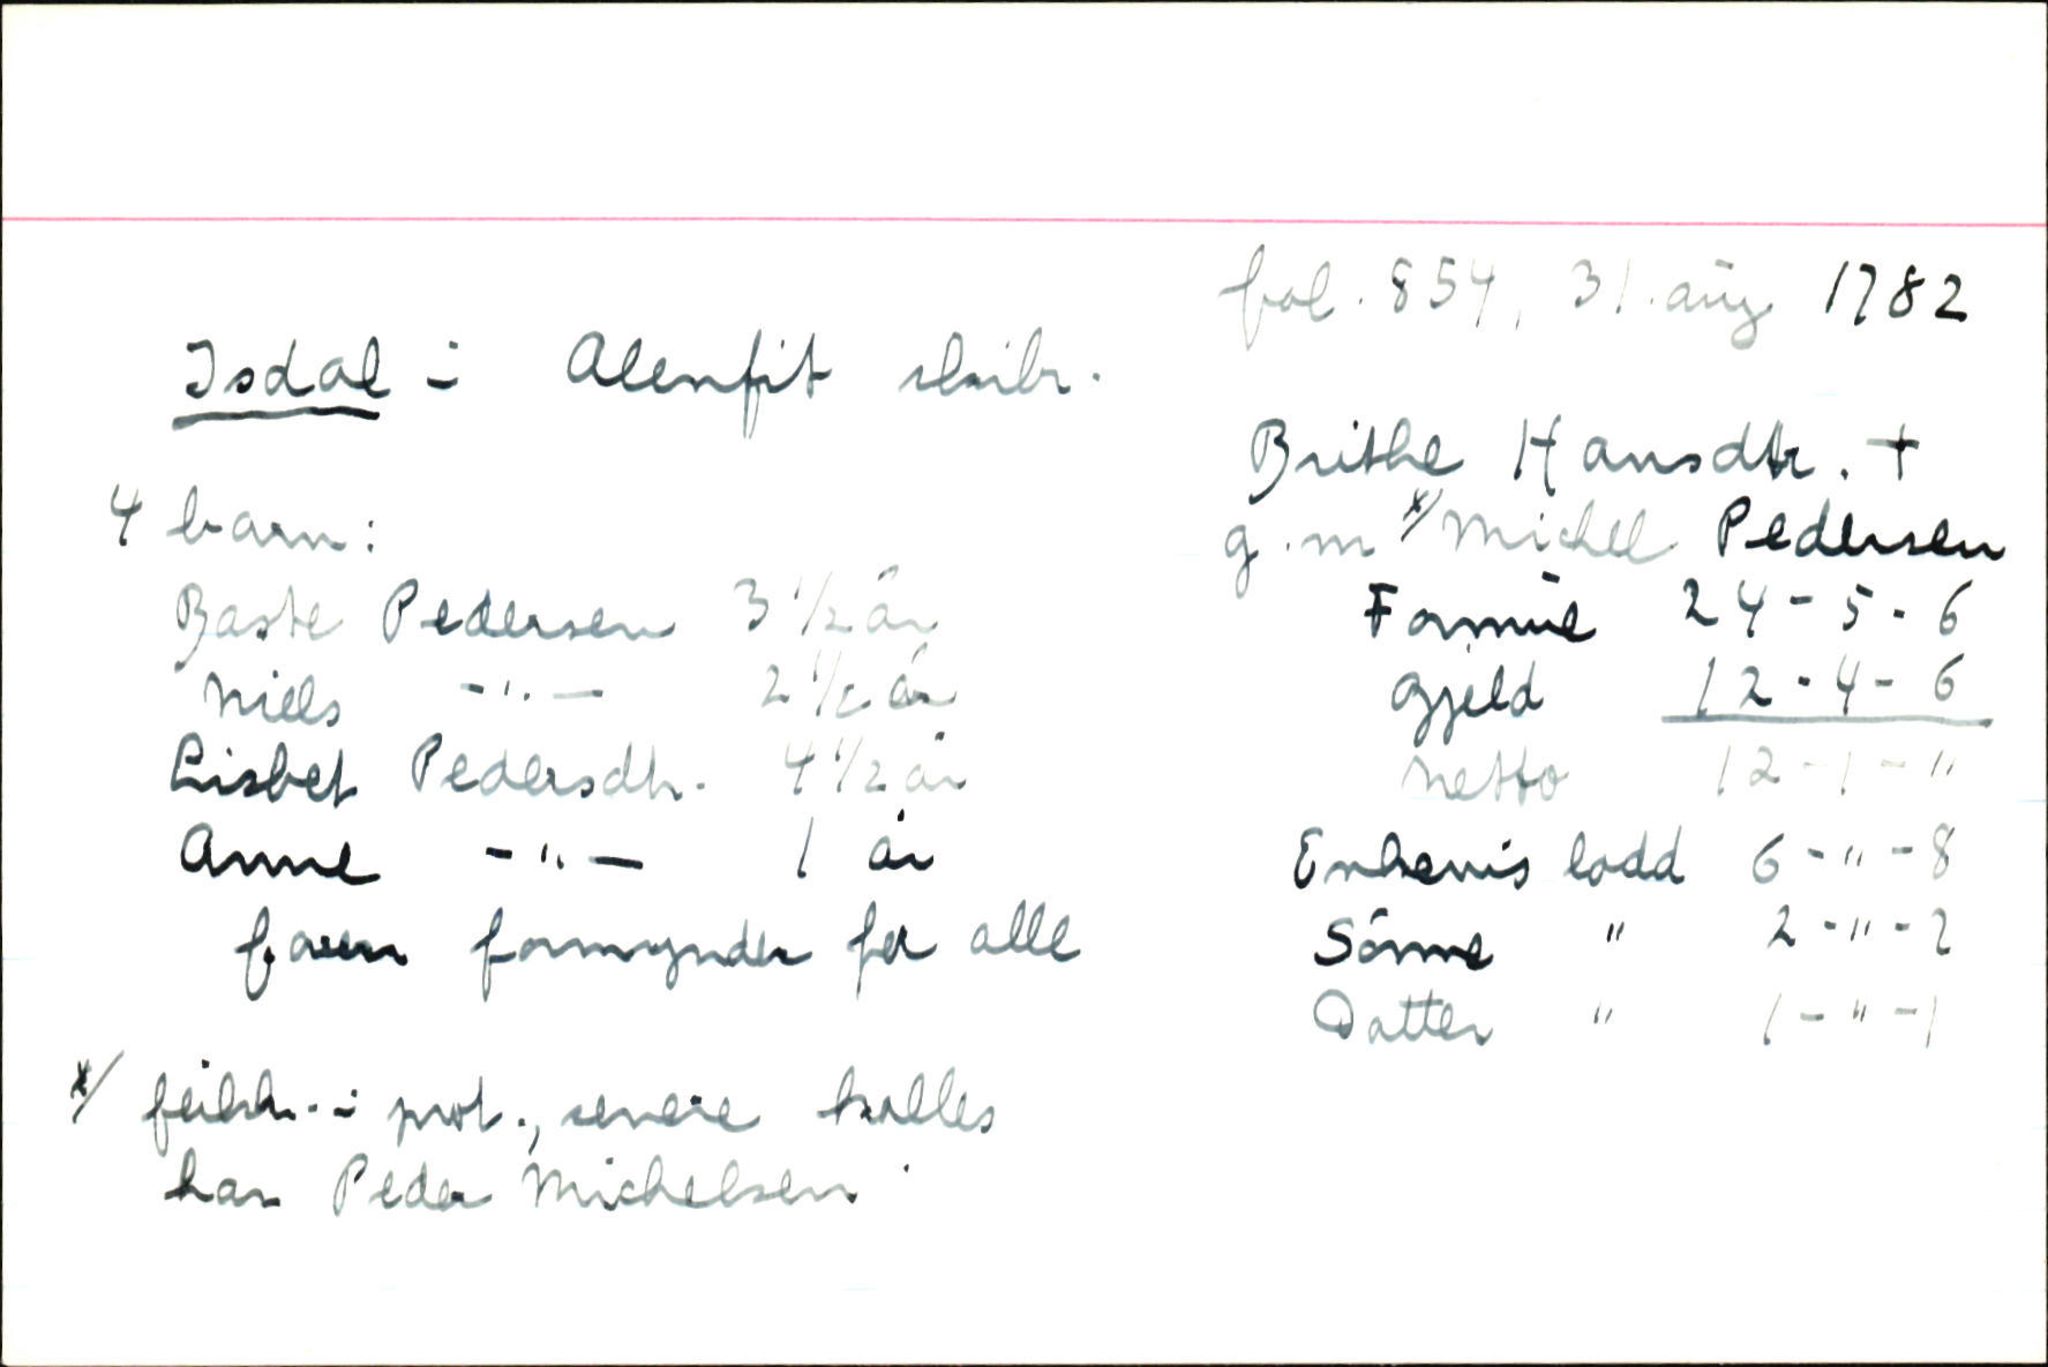 fol. 854, 31. aug 1782
Isdal i Alenfit skibr.
Brithe Hansdtr. +
g.m x/ Michel Pedersen
4 barn:
Baste Pedersen 3 1/2 år
Niels -"- 2 1/2 år
Lisbet Pedersdtr. 4 1/2 år
Anne -"- 1 år
faren formynder for alle
Formue 24-5-6
Gjeld 12-4-6
Netto 12-1-"
Enkem's lodd 6-"-8
Sönne " 2-"-2
Datter " 1-"-1
x/ feilskr. i prot., senere kalles
han Peder Michelsen